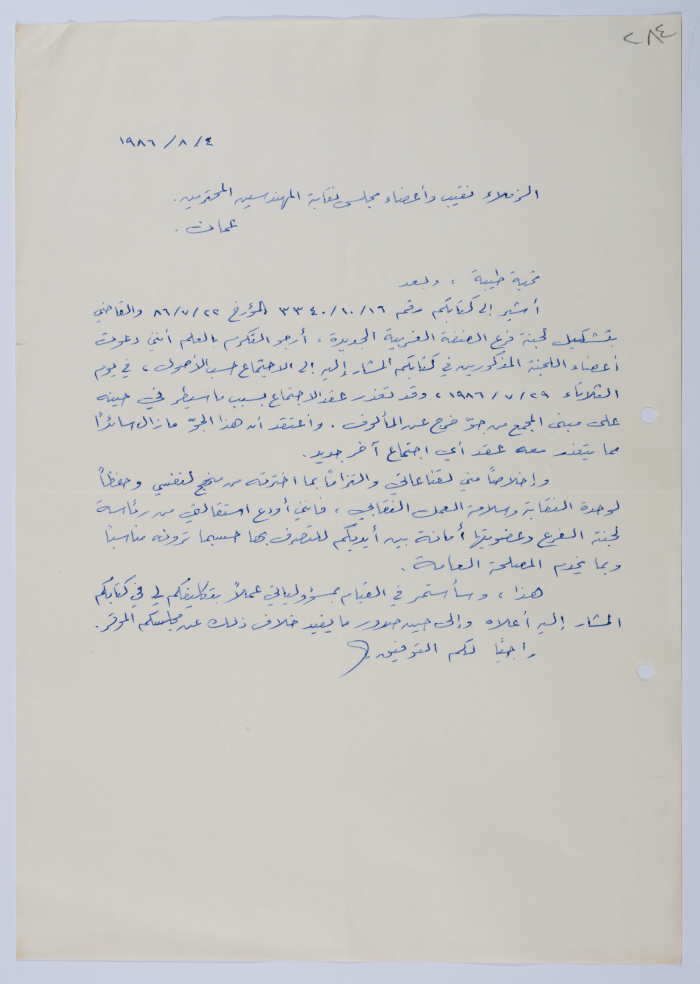 ٢٨٤
١٩٨٦/٨/٤
الزملاء نقيب وأعضاء مجلس نقابة المهندسين المحترمين.
عمان.
تحية طيبة، وبعد
أشير إلى كتابكم رقم ٣٣٤٠/١٠/١٦ المؤرخ ٨٦/٧/٢٢ والقاضي
بتشكيل لجنة فرع الضفة الغربية الجديدة، أرجو التكرم بالعلم أنني دعوت
أعضاء اللجنة المذكورين في كتابكم المشار إليه إلى الاجتماع حسب الأصول، في يوم
الثلاثاء ١٩٨٦/٧/٢٩، وقد تعذر عقد الاجتماع بسبب ما سيطر في حينه
على مبنى المجمع من جوّ خرج عن المألوف. وأعتقد أن هذا الجوّ ما زال سائدًا
مما يتعذر معه عقد أي اجتماع آخر جديد.
وإخلاصًا مني لقناعاتي والتزامًا بما اخترته من منهج لنفسي وحفظاً
لوحدة النقابة وسلامة العمل النقابي، فإنني أودع استقالتي من رئاسة
لجنة الفرع وعضويتها أمانة بين أيديكم للتصرف بها حسبما ترونه مناسبًا
وبما يخدم المصلحة العامة.
هذا، وسأستمر في القيام بمسؤولياتي عملاً بتكليفكم لي في كتابكم
المشار إليه أعلاه وإلى حين صدور ما يفيد خلاف ذلك عن مجلسكم الموقر.
راجيًا لكم التوفيق.